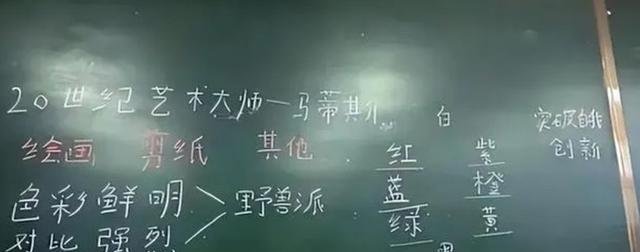 20世纪艺术大师—马蒂斯
白
突破自我
创新
绘画 剪纸 其他
红 紫
色彩鲜明 > 野兽派
蓝 橙
绿 黄
对比强烈